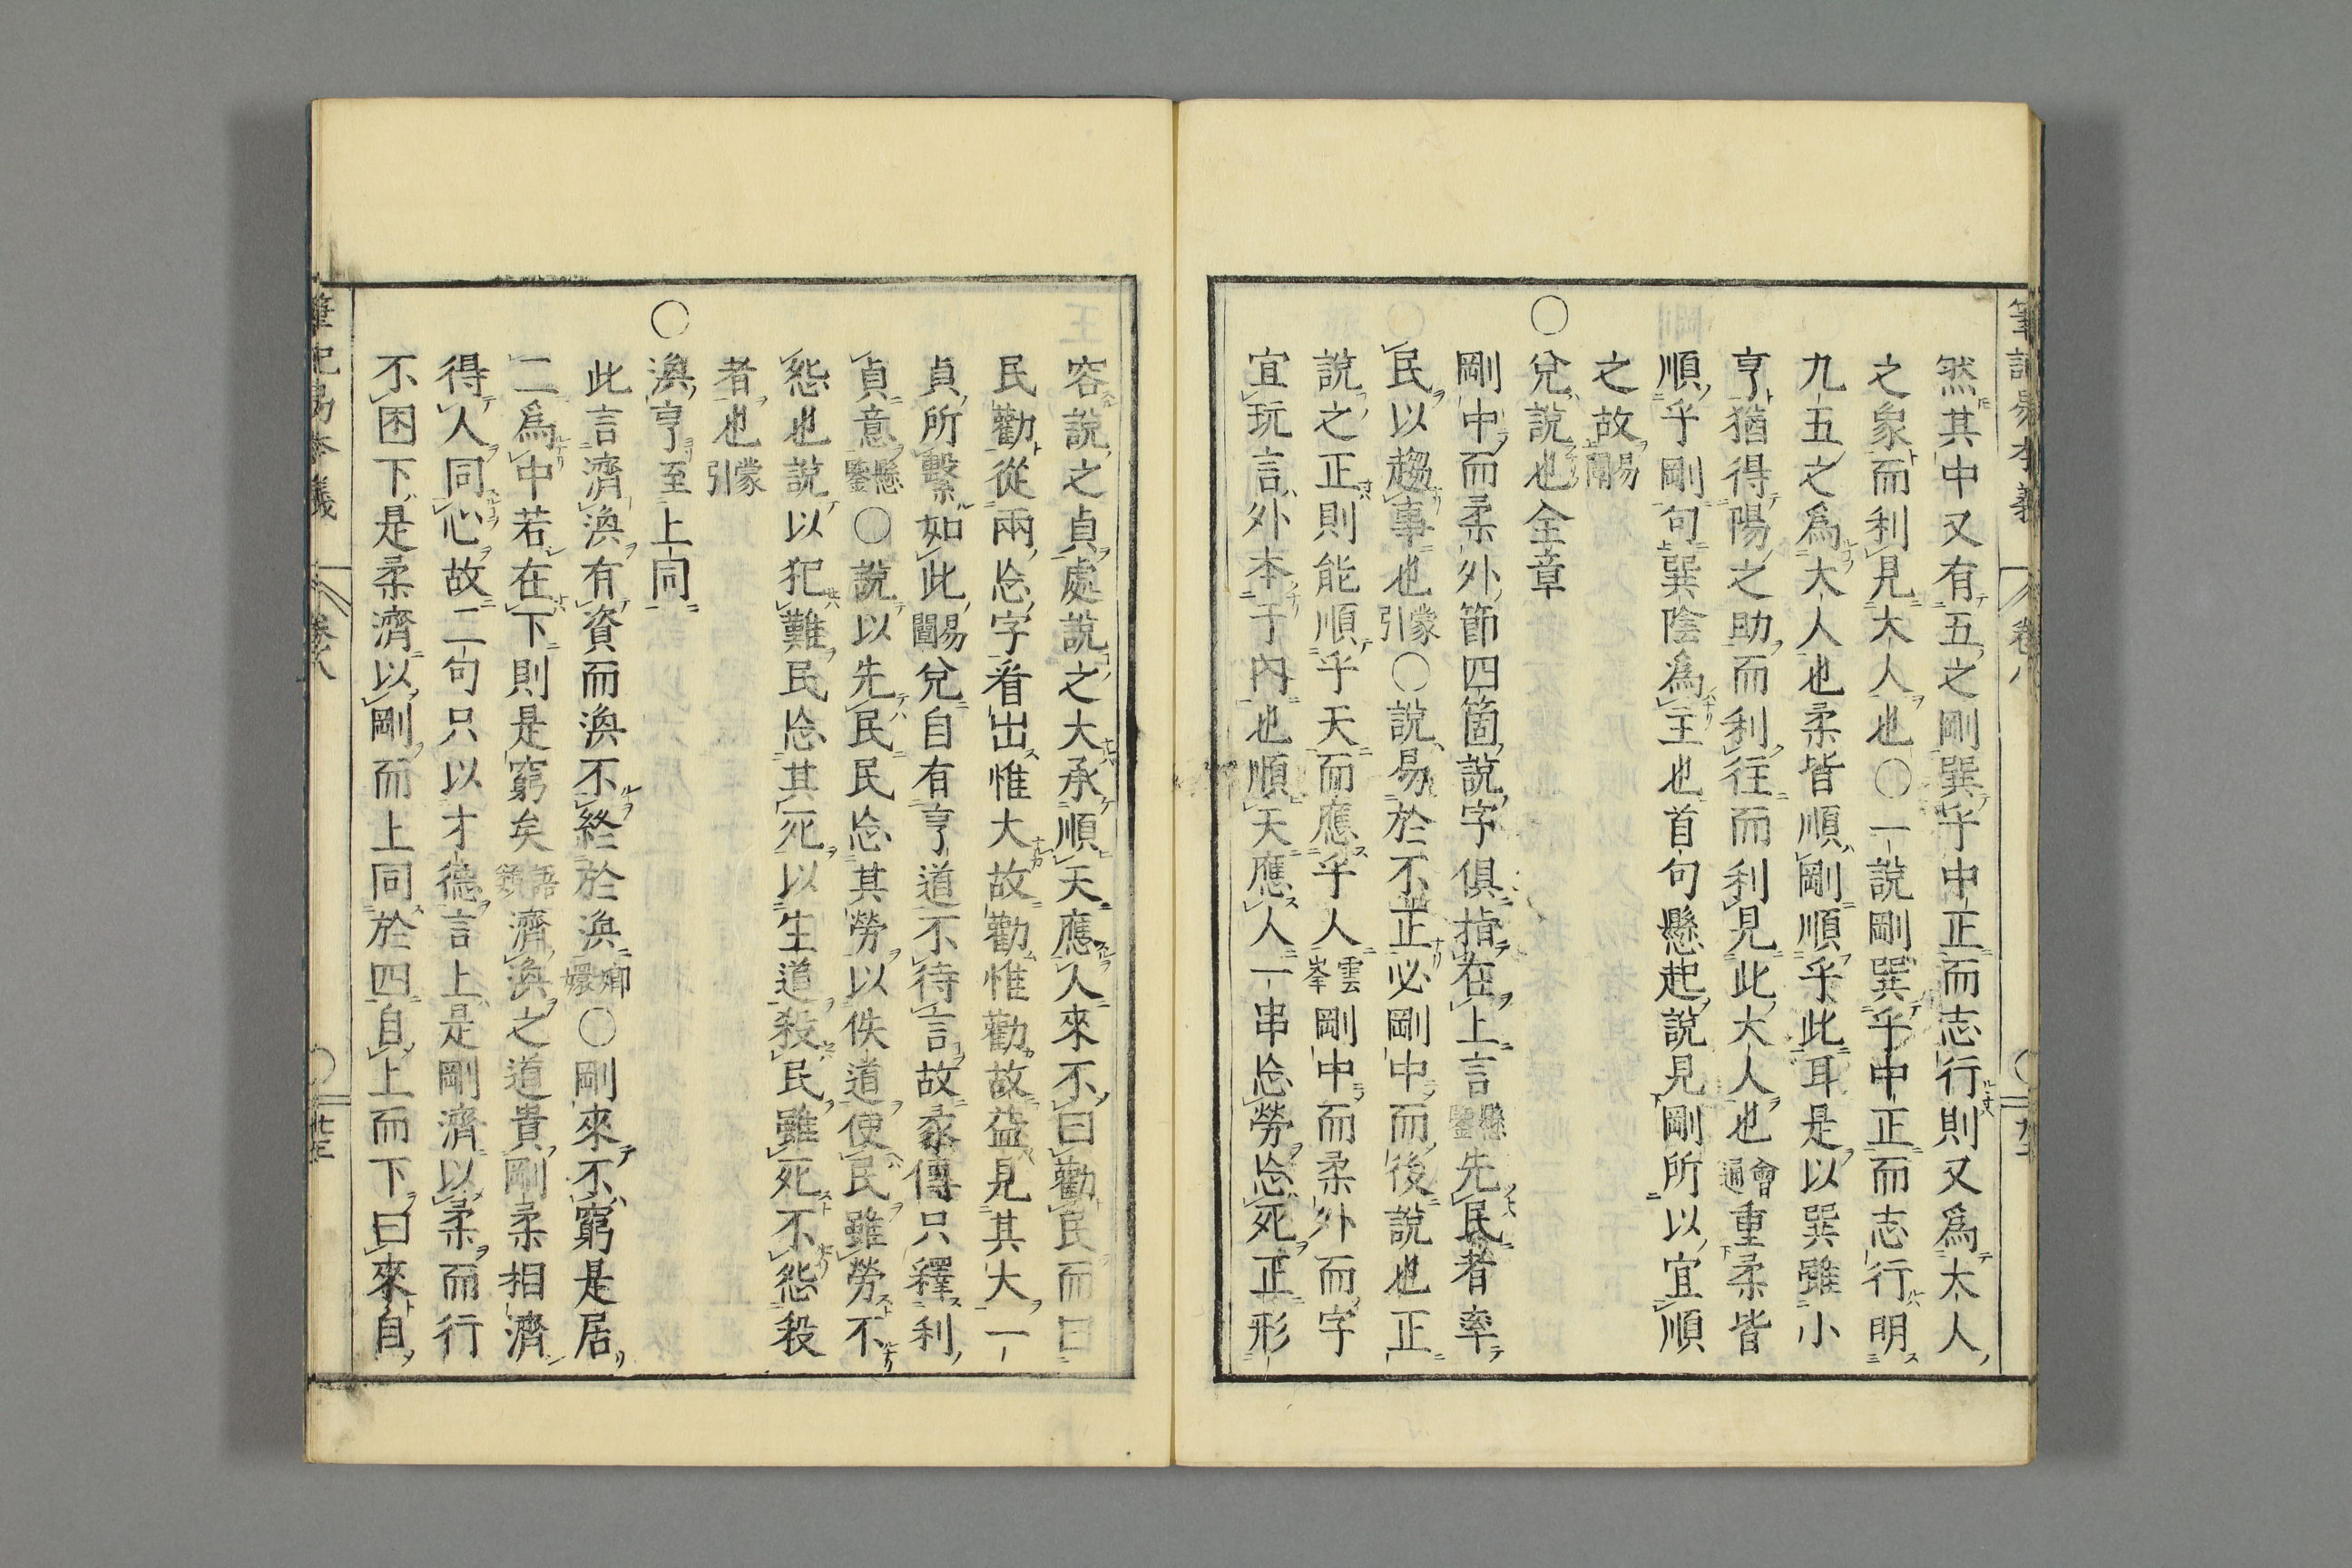 然其中又有五之剛巽乎中正而志行則又爲大人
之象而利見大人也○一說剛巽乎中正而志行明
九五之爲大人也柔皆順剛順乎此耳是以巽雖小
亨猶得陽之助而利往而利見此大人也會通重柔皆
順乎剛句巽陰爲主也首句懸起說見剛所以宜順
之故易闡
○兌說也全章
剛中而柔外節四箇說字俱指在上言懸鑒先民者率
民以趨事也蒙引○說易於不正必剛中而後說也正
說之正則能順乎天而應乎人雲峯剛中而柔外而字
宜玩言外本于內也順天應人一串忘勞忘死正形
容說之貞處說之大承順天應人來不曰勸民而曰
民勸從兩忘字看出惟大故勸惟勸故益見其大一
貞所繫如此易闡兌自有亨道不待言故彖傳只釋利
貞意懸鑒○說以先民民忘其勞以佚道使民雖勞不
怨也說以犯難民忘其死以生道殺民雖死不怨殺
者也蒙引
○渙亨至上同
此言濟渙有資而渙不終於渙瑯嬛○剛來不窮是居
二爲中若在下則是窮矣語類濟渙之道貴剛柔相濟
得人同心故二句只以才德言上是剛濟以柔而行
不困下是柔濟以剛而上同於四自上而下曰來自
筆記易本義
卷八